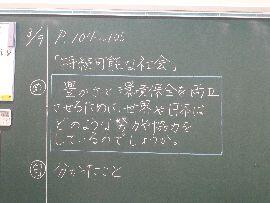 P.104~105
「持続可能な社会」
豊かさと環境保全を両立
させるために、世界や日本は
どのような努力や協力を
しているのでしょうか。
分かたこと